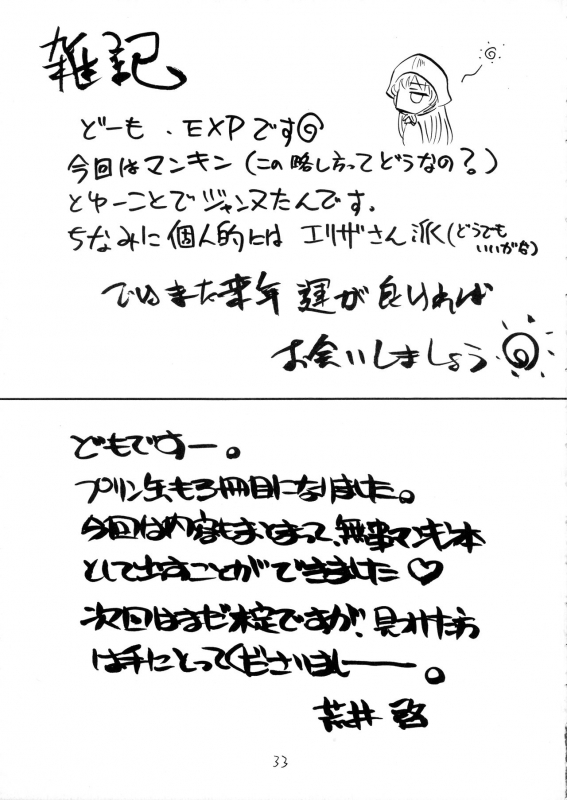 雑記
どーも、EXPです
今回はマンキン(この略し方ってどうなの?)
とゆーことでジャンヌたんです。
ちなみに個人的には エリザさん派(どうでも
いいがな)
でわまた来年 運が良ければ
お会いしましょう
どもですー。
プリン缶も3冊目になりました。
今回は内容もまとまって、無事マンキン本
として出すことができました♡
次回はまだ未定ですが、見かけた方
は手にとってくださいましー。
荒井 啓
33